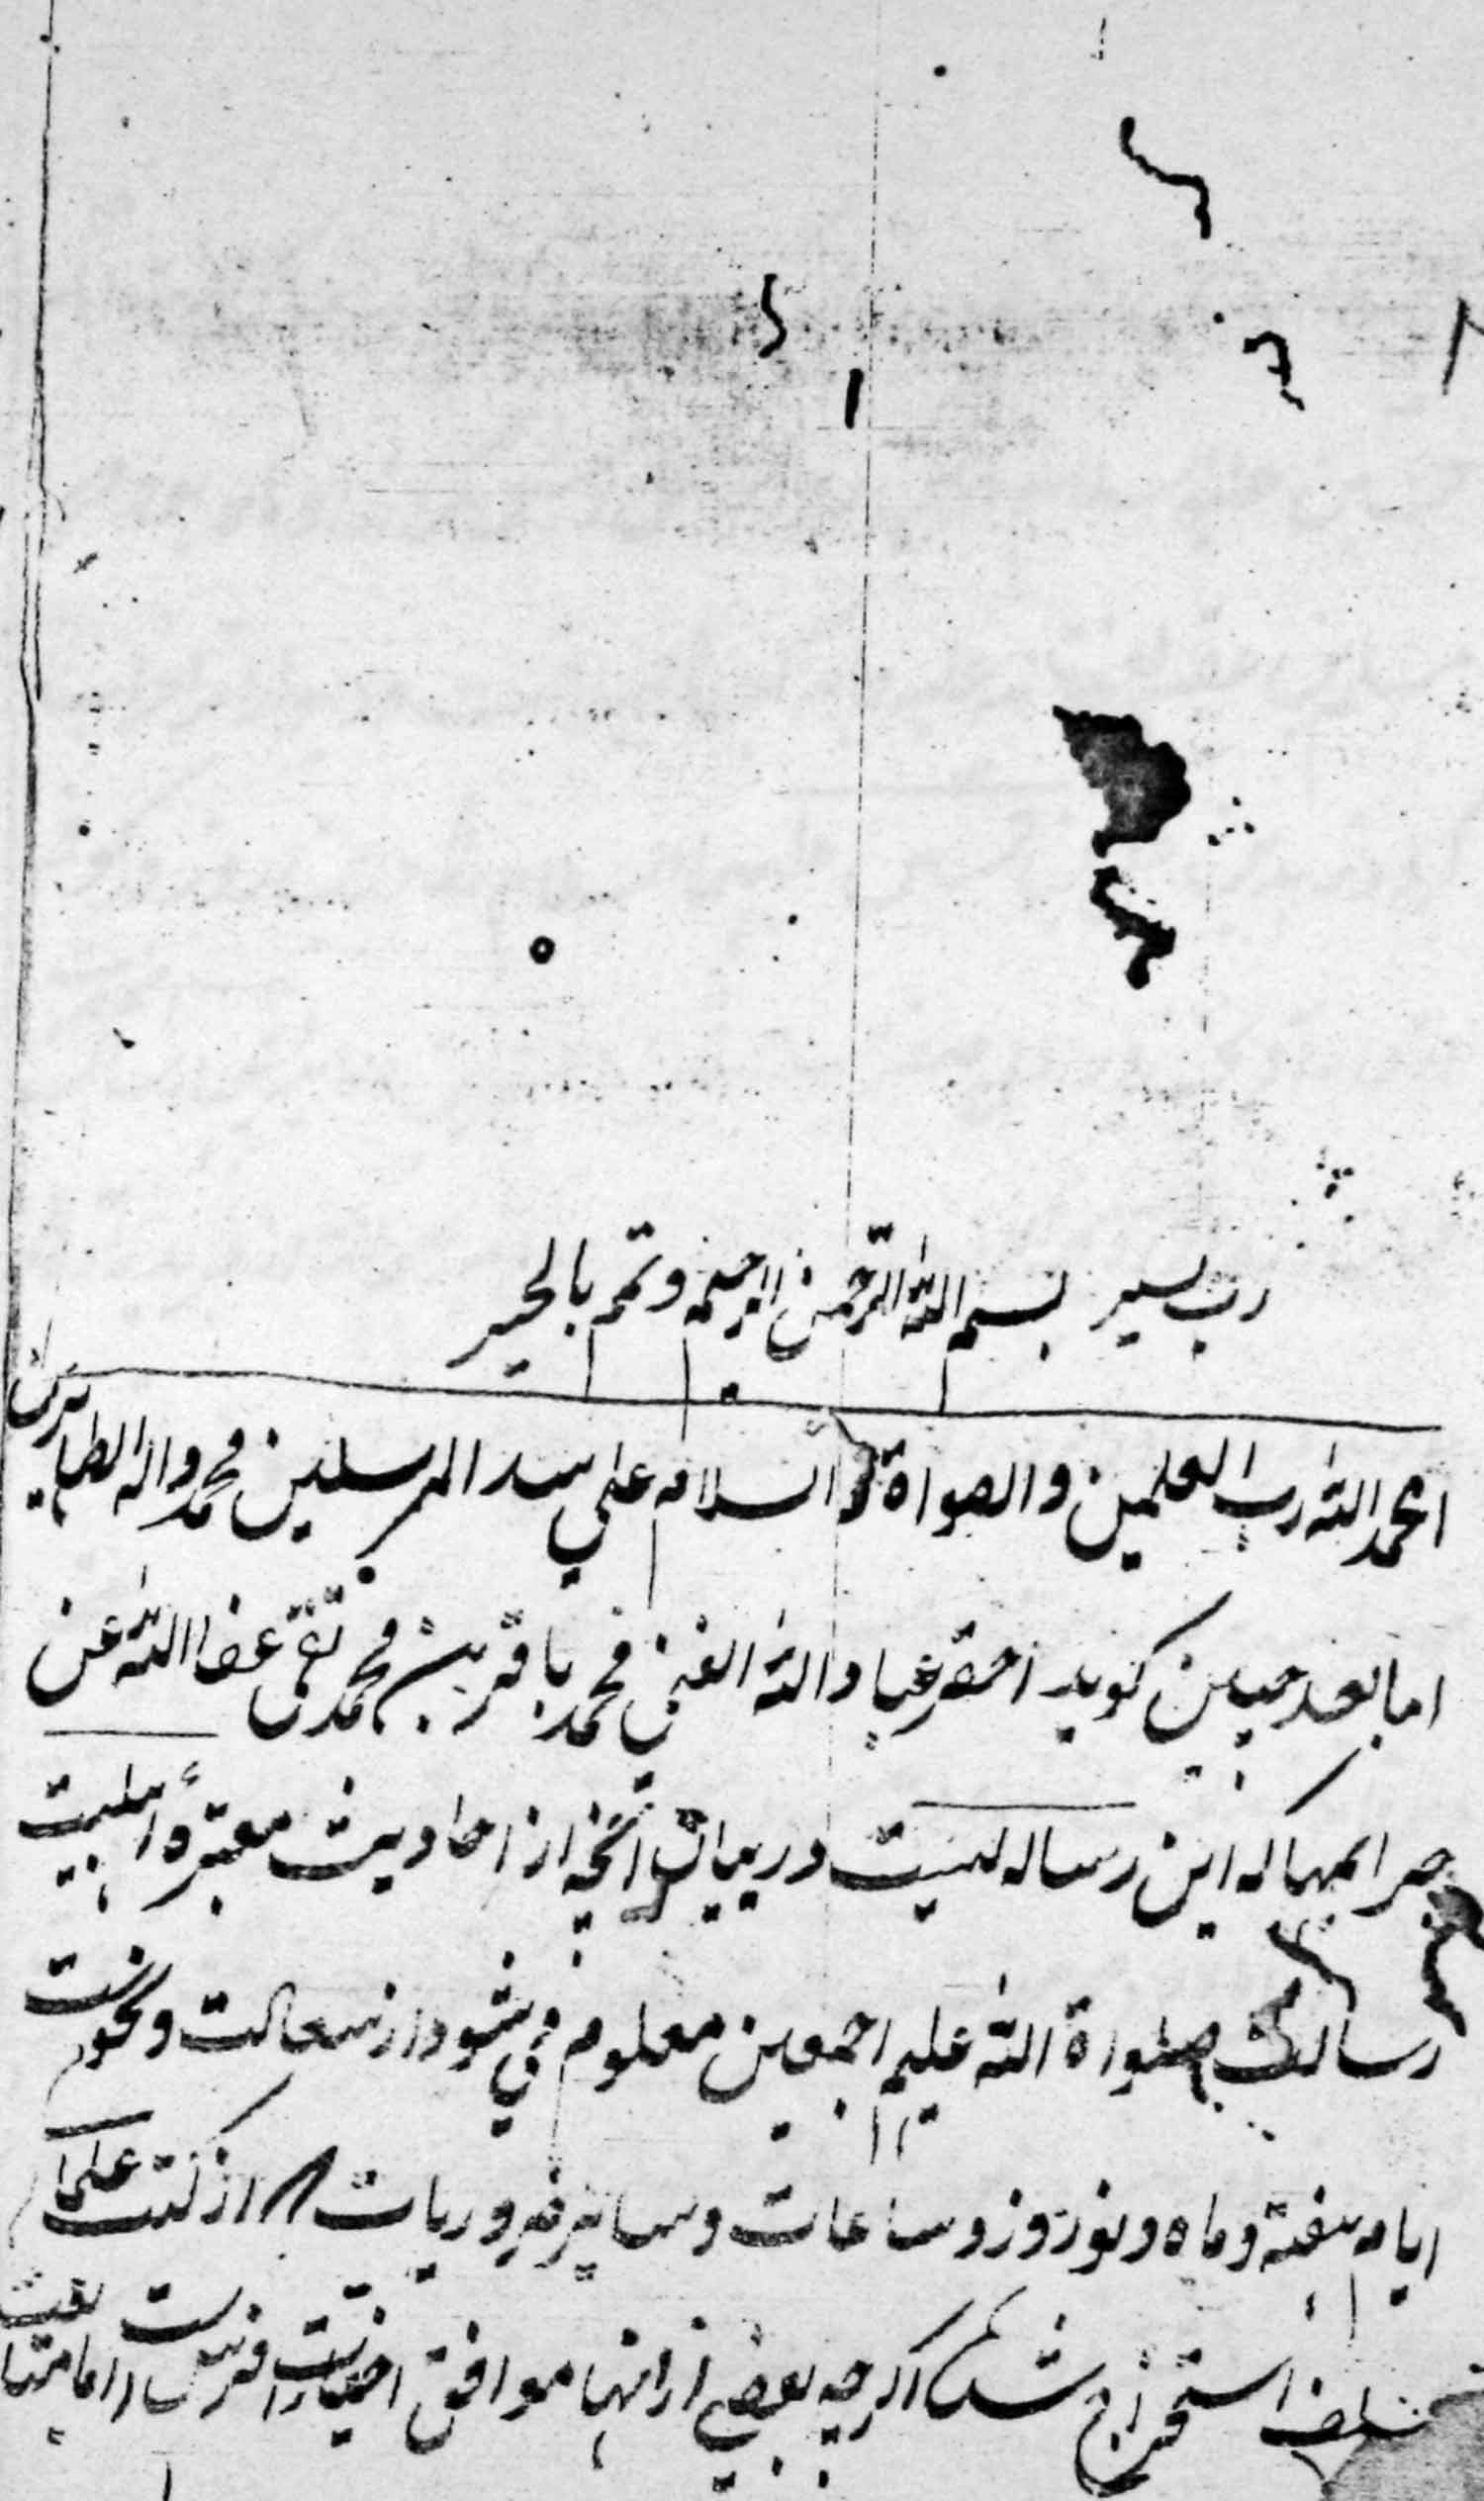 رب یسر بسم الله الرحمن الرحیم وتمم بالخیر
الحمد الله رب العلمین والصلواة والسلام علی سید المرسلین محمد واله الطاهرین
اما بعد چنین کوید احقر عباد الله الغنی محمد باقر بن محمد تقی عفا الله عن
جرایمهما که این رساله ایست در بیان آنچه از احادیث معتبرهٔ اهلبیت
رسالت صلواة الله علیهم اجمعین معلوم می شود از سعادت ونحوست
ایام هفته وماه ونوروز وساعات وسایر ضروریات از کتب علمای
سلف استخراج شد اکرچه بعضی از انها موافق اما متابعت